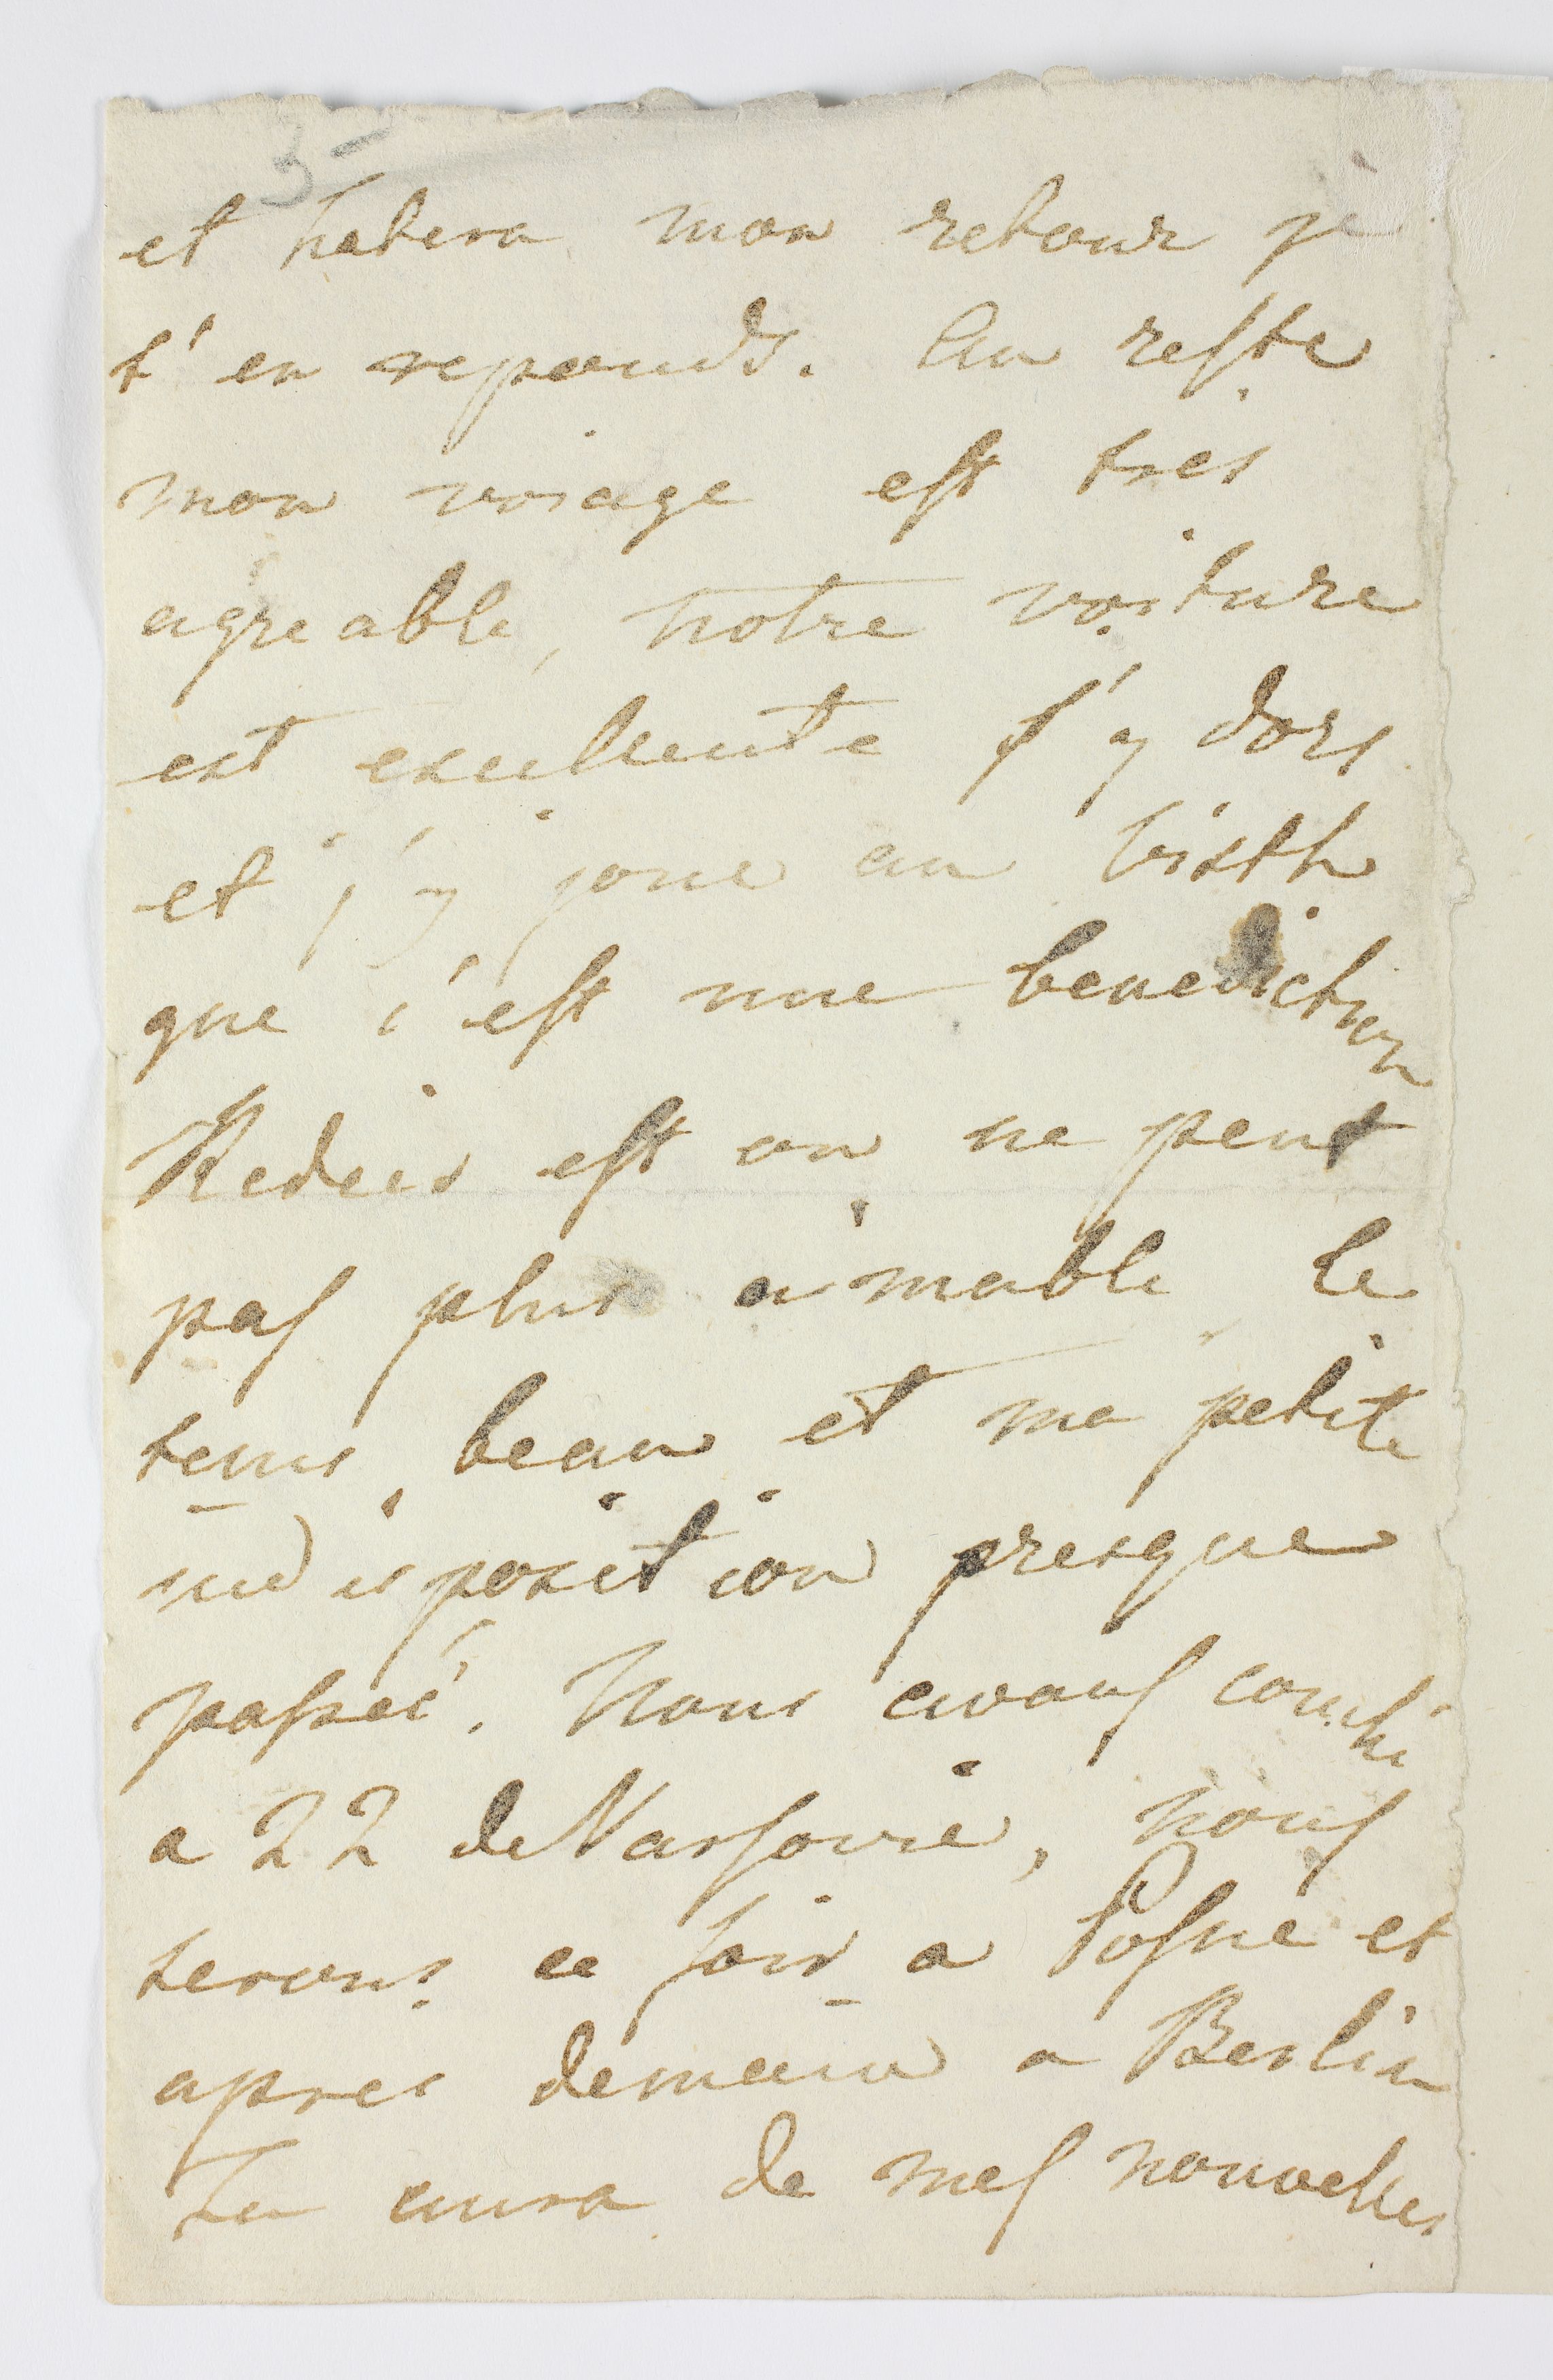 3
et hatera mon retour je
t'en reponds. Au reste
mon voiage est tres
agreable, notre voiture
est excellente j'y dors
et j'y joue au bisth
que c'est une benediction
est on ne peut
pas plus aimable le
tems beau et ma petite
indisposition presque
passeé. Nous avons couché
a 22 de Varsovie, nous
serons ce soir a Posne et
apres demain a Berlin
Tu aura de mes nouvelles